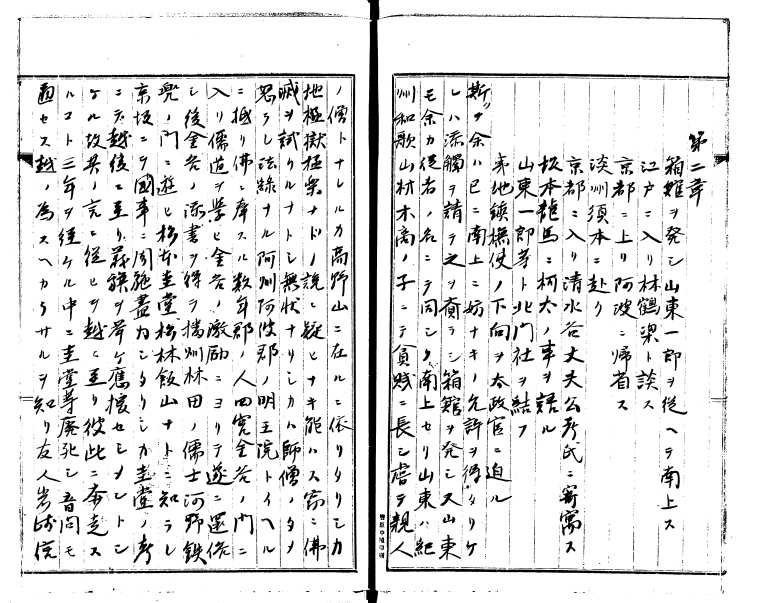 第二章
箱館ヲ発シ山東一郎ヲ従ヘテ南上ス
江戸ニ入リ林鶴梁ト談ス
京都ニ上リ阿波ニ帰省ス
淡州須本ニ赴ク
京都ニ入リ清水谷大夫公考氏ニ寄寓ス
坂本龍馬ニ柯太ノ事ヲ語ル
山東一郎等ト北門社ヲ結フ
夷地鎮撫使ノ下向ヲ太政官ニ迫ル
斯ッテ余ハ已ニ南上ニ妨ナキノ允許ヲ得タリケ
レハ添觸ヲ請テ之ヲ齎ラシ箱館ヲ発シ又山東
モ余カ従者ノ名ニテ同シク南上セリ山東ハ紀
州和歌山材木商ノ子ニテ貧賤ニ長シ虐テ親人
ノ僧トナレルカ高野山ニ在ルニ依リタリシカ
地極獄極楽ナドノ説ニ疑ヒナキ能ハス窃ニ佛
滅ヲ試クルナトシ無状ナリシカハ師僧ノタメ
怒ラレ法縁ナル阿州阿波郡ノ明王院トイヘル
ニ抵リ佛ニ奉スル数年郡ノ人四宮金谷ノ門ニ
入リ儒道ヲ学ヒ金谷ノ激励ニヨリテ遂ニ還俗
シ後金谷ノ添書ヲ得テ播州林田ノ儒士河野鉄
兜ノ門ニ遊ヒ松本圭堂松林飯山ナトニ知ラレ
京坂ニテ國事ニ周施盡力シタリシカ圭堂ノ考
ニテ越後ニ至リ義旗ヲ挙ケ應援セシメントシ
ケル故其ノ言ニ従ヒテ越ニ至リ彼此ニ奔走ス
ルコト三年ヲ経ケル中ニ圭堂等廃死シ音問モ
通セス越ノ為スヘカラサルヲ知リ友人岩崎